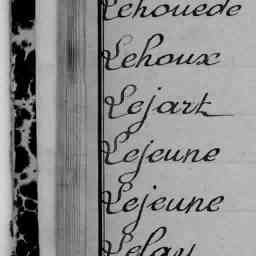 Lehouede
Lehoux
Lejart
Lejeune
Lejeune
Lelay